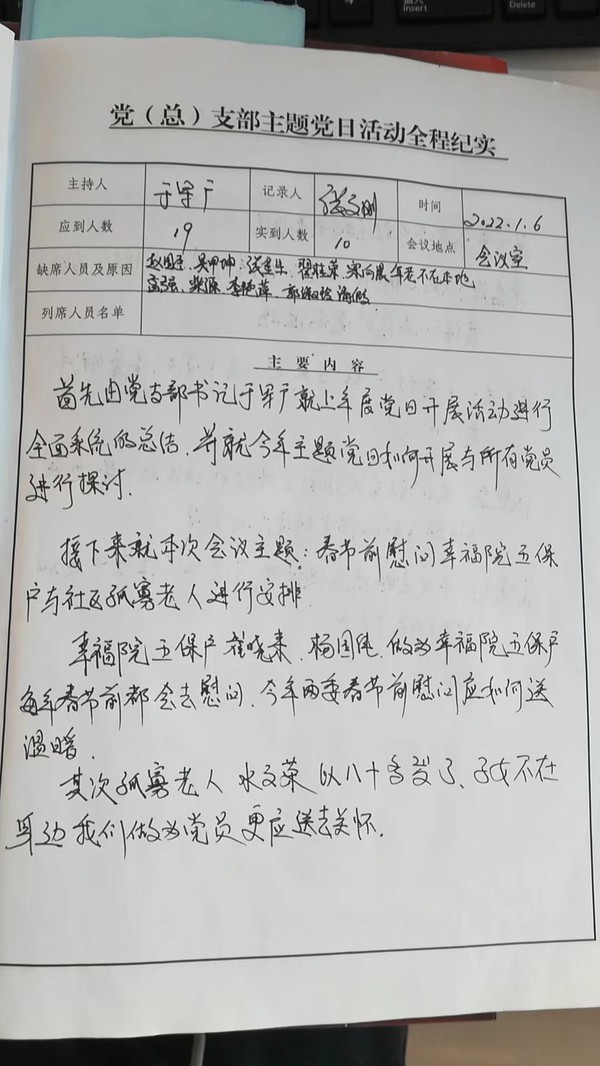 Insert
Delete
党（总）支部主题党日活动全程纪实
主持人 于军广 记录人 张文刚 时间 2022.1.6
应到人数 19 实到人数 10 会议地点 会议室
缺席人员及原因 年老不在本地
富强、 请假
列席人员名单
主要内容
首先由党支部书记于军广就上年度党日开展活动进行
全面系统的总结，并就今年主题党日如何开展与所有党员
进行探讨。
接下来就本次会议主题：春节前慰问幸福院五保
户与社区孤寡老人进行安排
幸福院五保户崔晓来、杨国 做为幸福院五保户
每年春节前都会去慰问，今年两委春节前慰问应如何送
温暖。
其次孤寡老人水文荣以八十多岁了、子女不在
身边我们做为党员更应送去关怀。